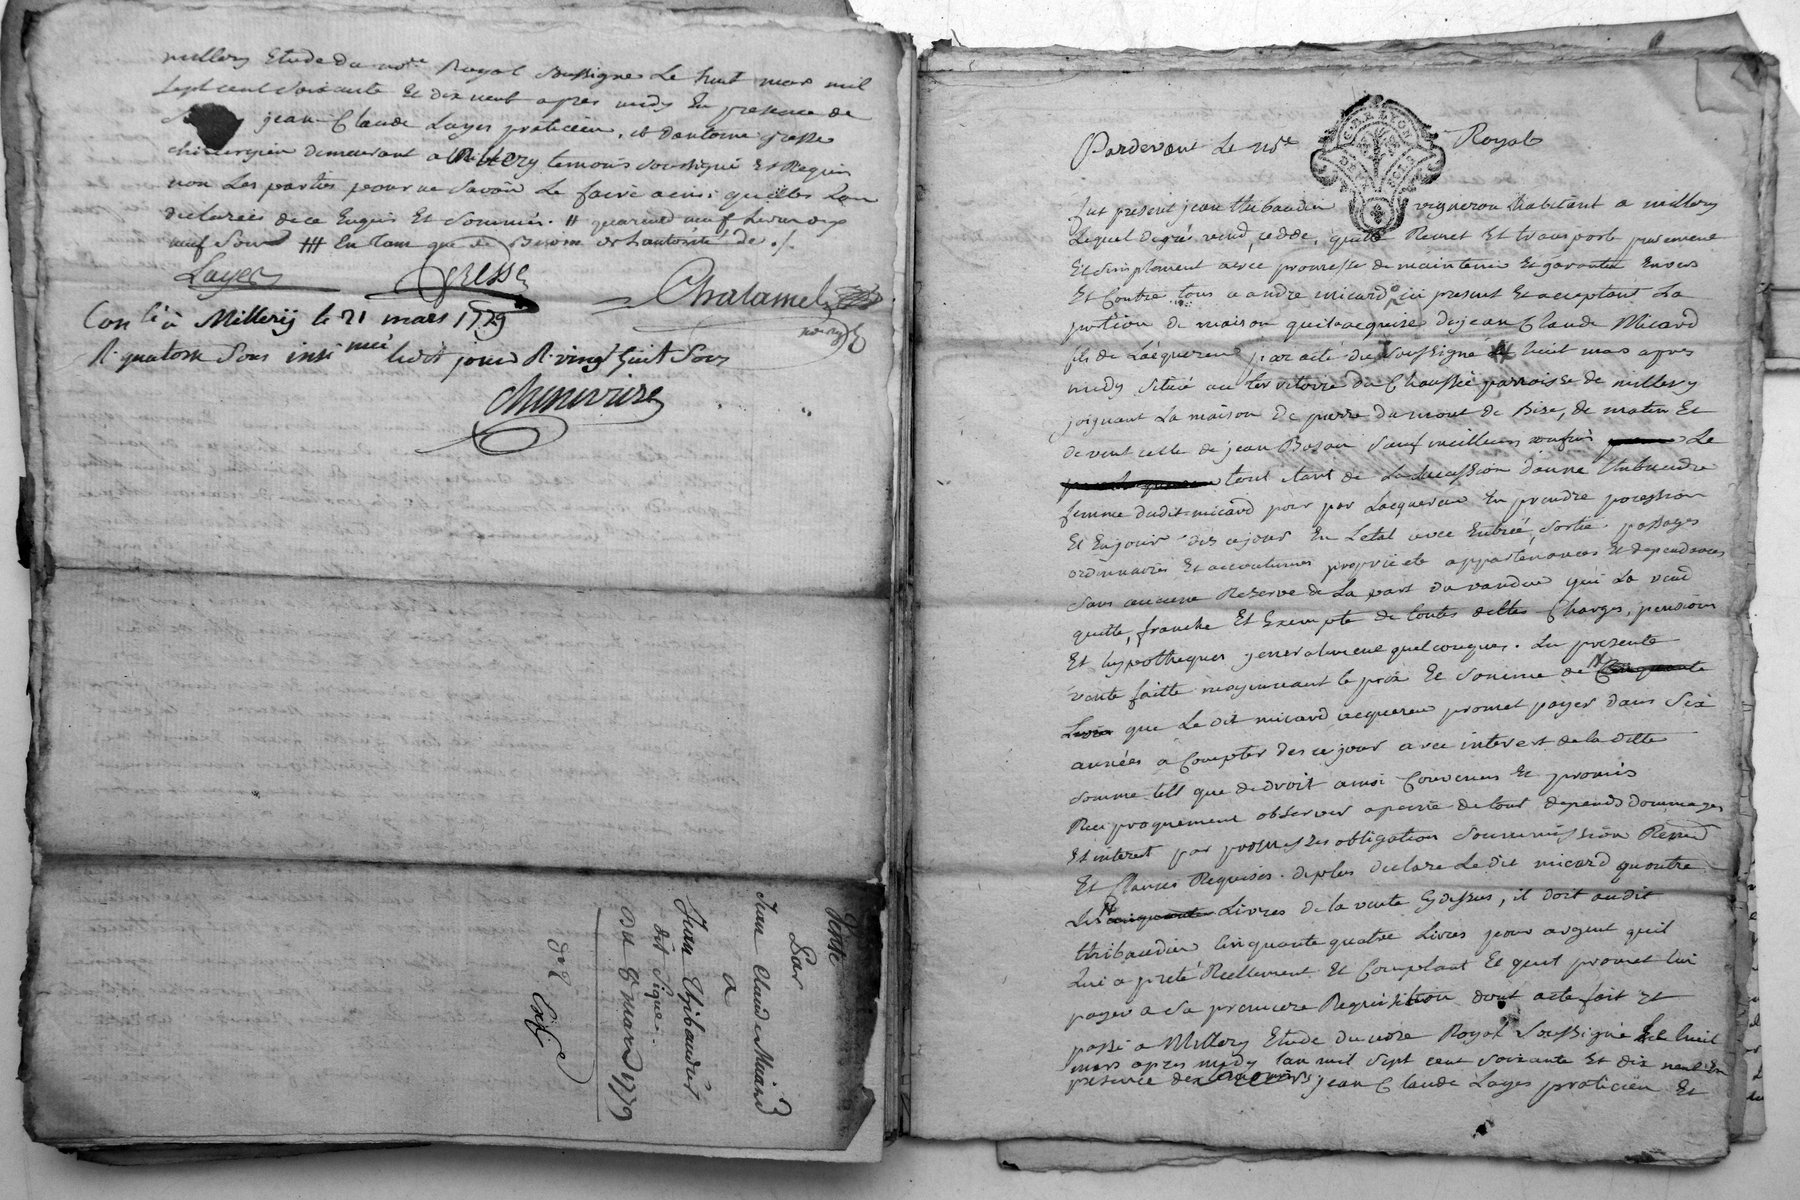 millery Etude du nore Royal soussigné Le huit mars mil
sept cent soixante Et dix neuf apres midy En presence de
jean Claude Layes praticien, et d'antoine gresse
chirurgien demeurant a Millery temoins soussigné Et Requis
non Les parties pour ne savoir Le faire ainsi quelles Lon
declarées de ce Enquis Et sommés. # quarante neuf Livres dix
neuf sous ### En tant que de Besoin de Lautorité de ./.
Layes Gresse Chalamel
Con lé à Millery le 21 mars 1779
R. quatorze sous insi nué ledit jour R. vingt huit sous
Cheneviere
Vente
Par
Jean Claude Micard
a
Jean Thibaudier
dit Piquet
Du 8 mars 1779
Pardevant Le nore Royal
GEN. DE LYON
fut present jean thibaudier vigneron habitant a millery
Lequel degré vend, cedde, quitte Remet Et transporte purement
Et simplement avec promesse de maintenir Et garantir Envers
Et Contre tous a andre micard ici present Et acceptant La
portion de maison quil a acquise de jean Claude Micard
fils de Lacquereur par acte du soussigné Le huit mars apres
midy située au territoire du Chaussée parroisse de millery
joignant La maison de pierre dumont de Bise, de matin Et
de vent celle de jean Boson sauf meilleurs confins Le
tout etant de La succession d'anne thibaudier
femme dudit micard pour par Lacquereur En prendre possession
Et En jouir des ce jour En Letat avec Entrée, sortie, passages
ordinnaires Et accoutumes proprieté appartenances Et dependances
sans aucune Reserve de La part du vandeur qui La vend
quitte, franche Et Exempte de toutes dettes Charges, pensions
Et hypotheques generalement quelconques. La presente
vente faitte moyennant le prix Et somme de # Cinquante
Livres que Le dit micard acquereur promet payer dans six
années a Compter des ce jour avec interest de la ditte
somme tell que de droit ainsi Convenus Et promis
Reciproquement observer a peine de tous depends dommages
Et interest par promesses obligation soummission Renond
Et Clauses Requises. de plus declare Le dit micard quoutre
Les # cinquante Livres de la vente cy dessus, il doit audit
thibaudier Cinquante quatre Livres pour argent quil
Lui a preté Reellement Et Comptant Et quil promet lui
payer a sa premiere Requisition dont acte fait Et
passé a Millery Etude du nore Royal soussigné Le huit
mars apres midy Lan mil sept cent soixante Et dix neuf En
presence de jean Claude Layes praticien Et